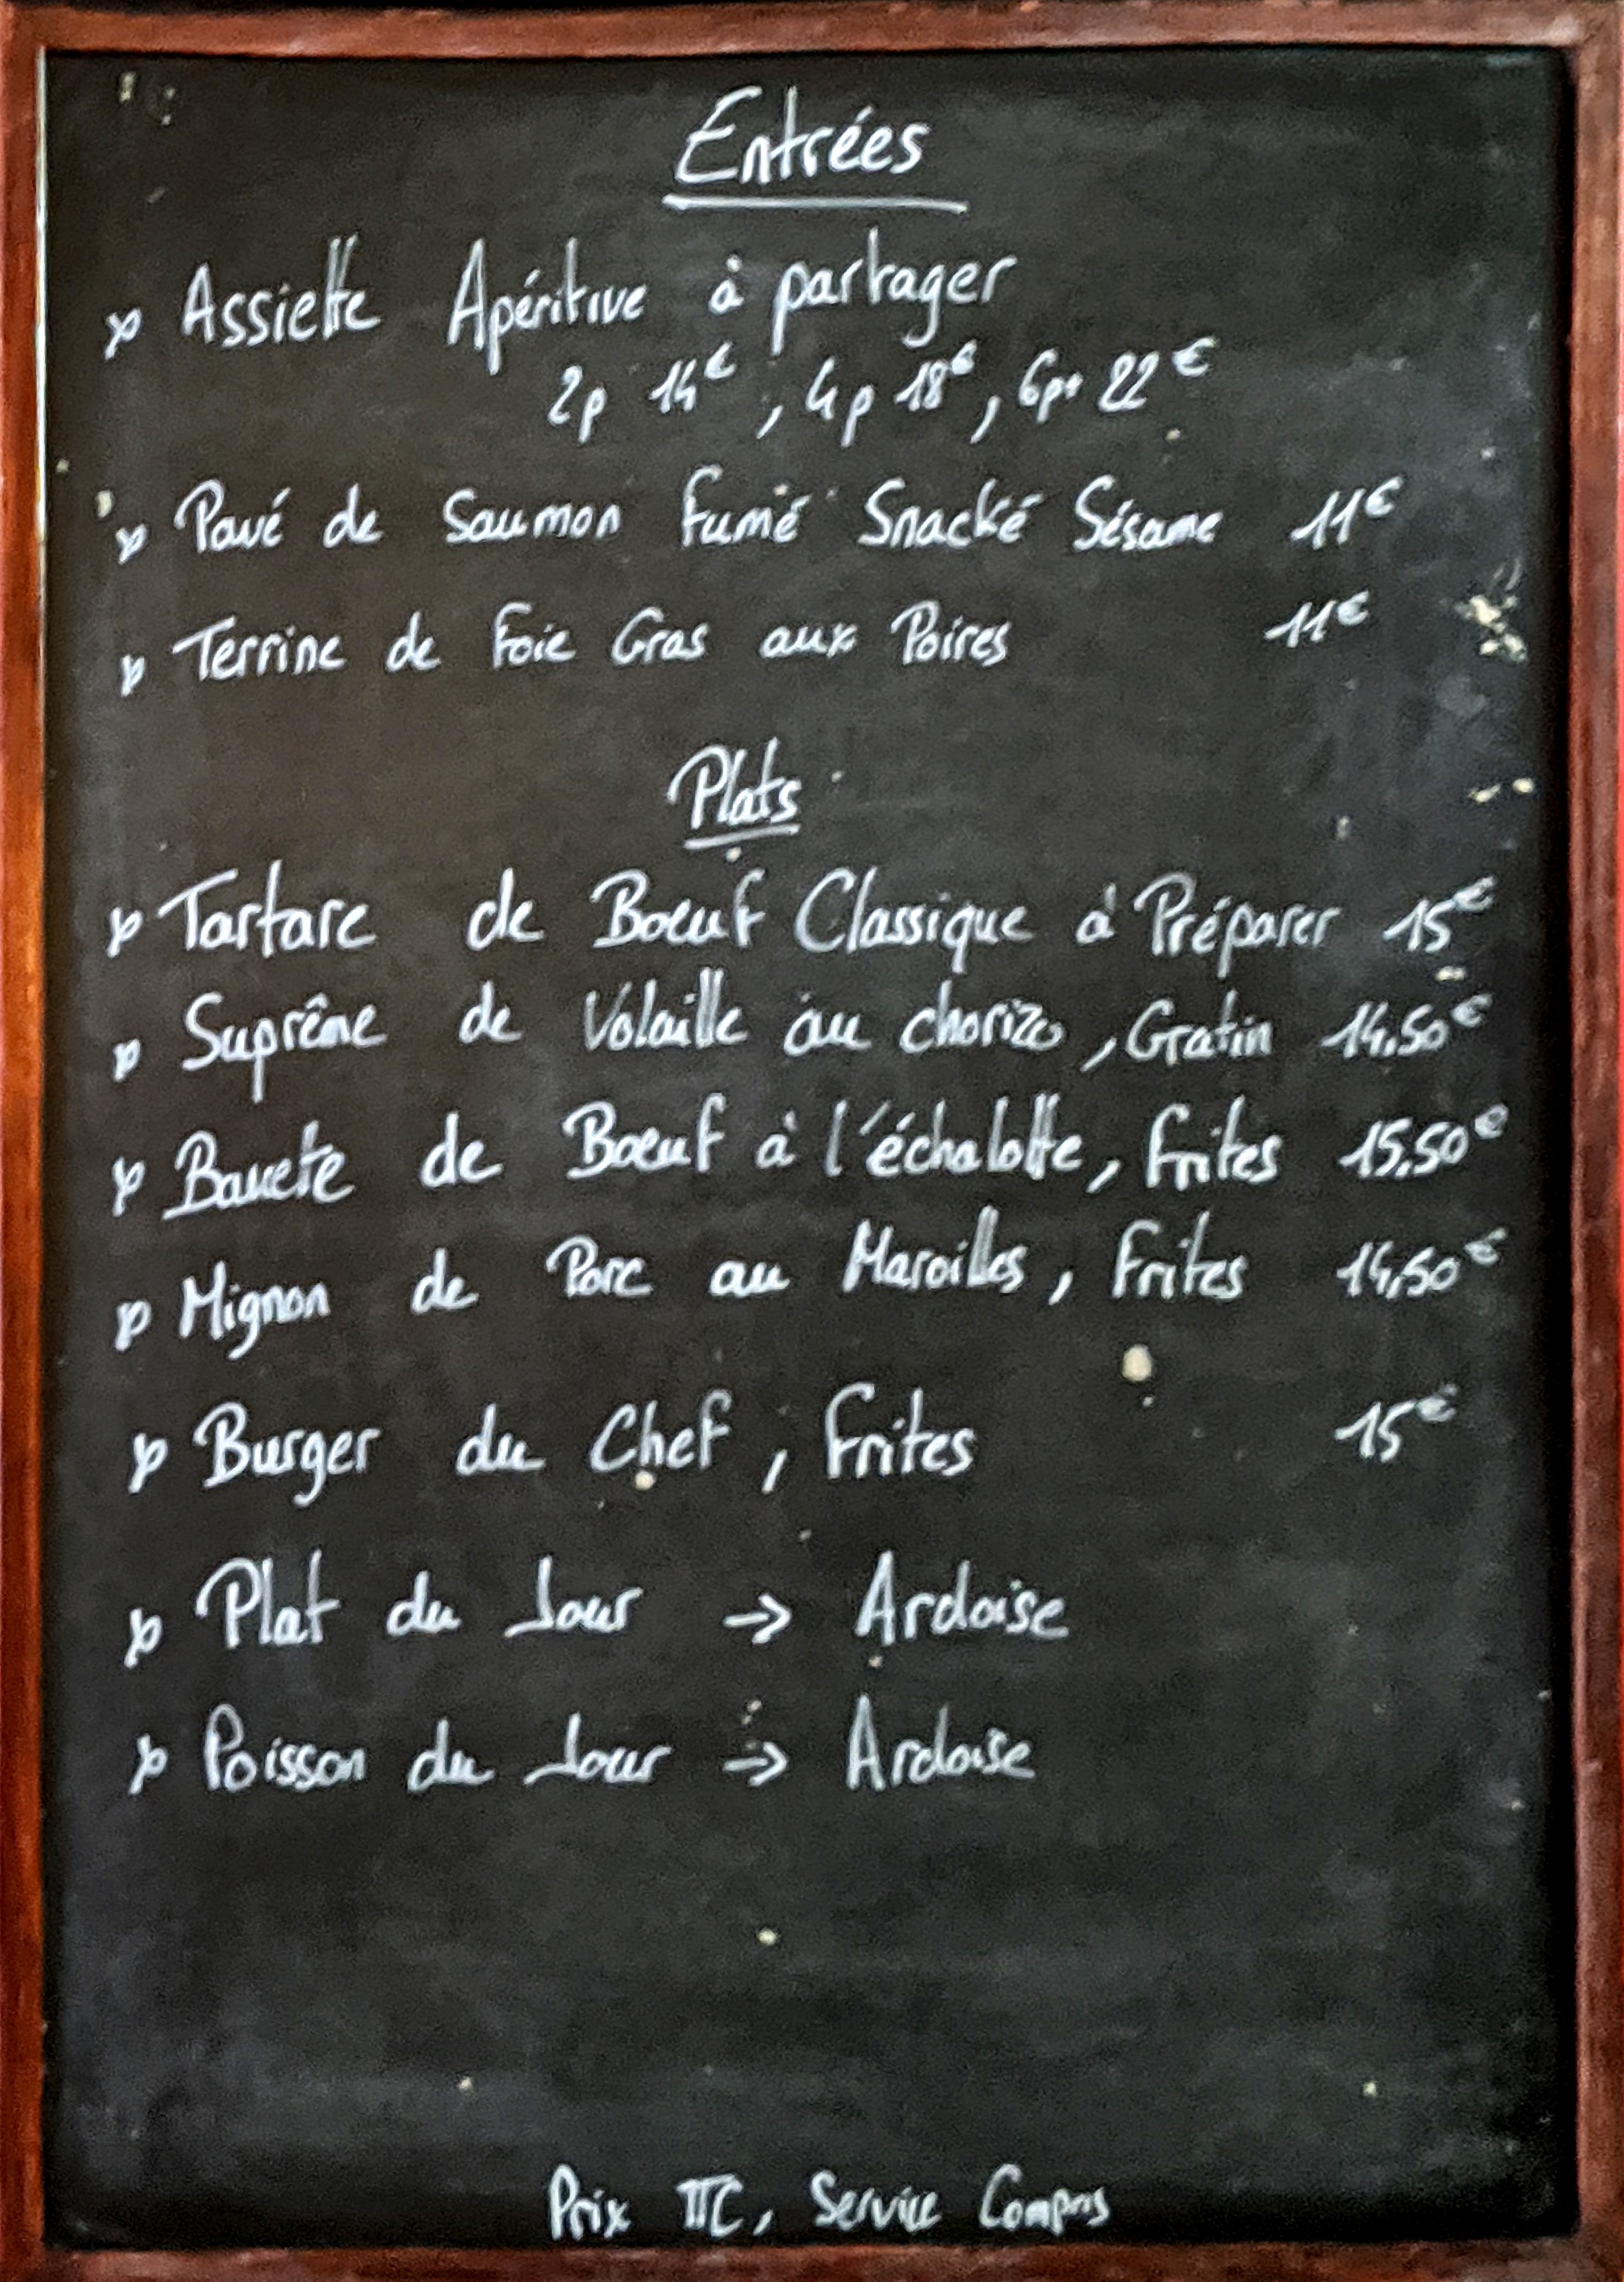 Entrées
Assiette Apéritive à partager
2p 14€, 4p 18€, 6p 22€
Pavé de Saumon fumé Snacké Sésame 11€
Terrine de Foie Gras aux Poires 11€
Plats
Tartare de Boeuf Classique à Préparer 15€
Suprême de Volaille au chorizo, Gratin 14.50€
Bavette de Boeuf à l'échalotte, frites 15.50€
Mignon de Porc au Maroilles, Frites 14,50€
Burger du Chef, Frites 15€
Plat du Jour → Ardoise
Poisson du Jour → Ardoise
Prix TTC, Service Compris